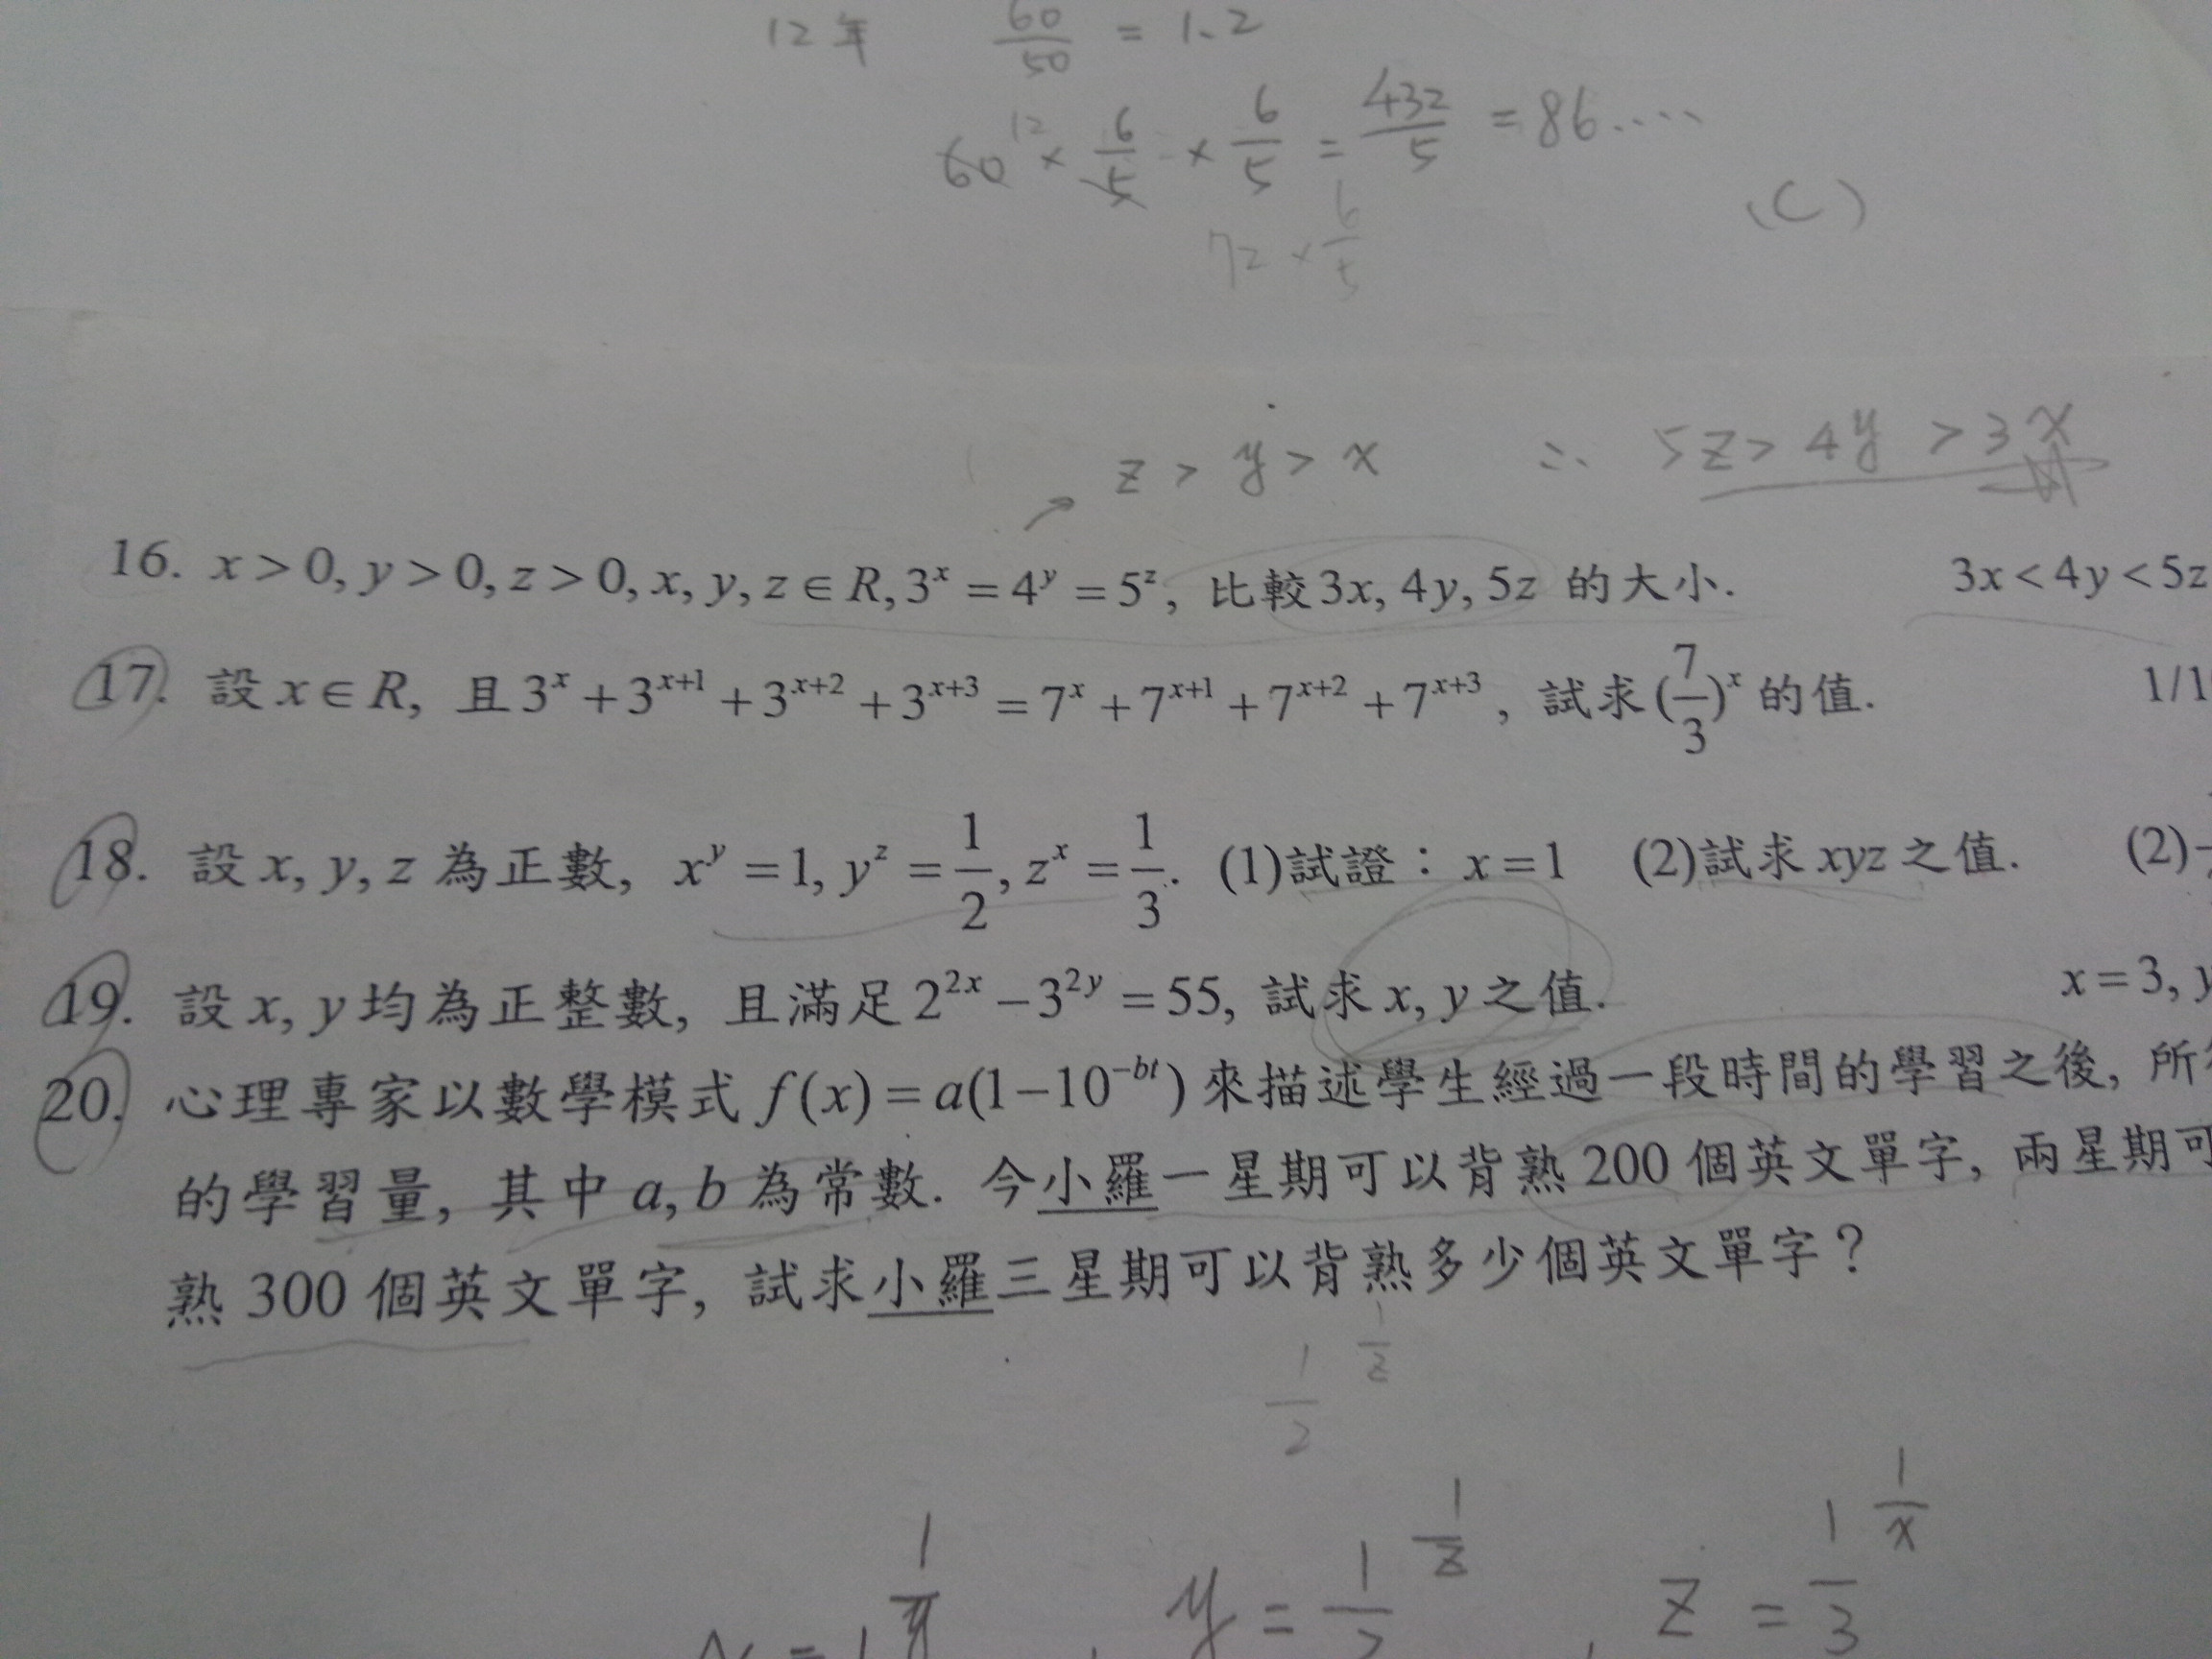 12年 60/50 = 1.2
60 12 × 6/5 × 6/5 = 432/5 = 86....
72 × 6/5 (C)
z > y > x ∴ 5z > 4y > 3x
16. x > 0, y > 0, z > 0, x, y, z ∈ R, 3^x = 4^y = 5^z, 比較 3x, 4y, 5z 的大小. 3x < 4y < 5z
17. 設 x ∈ R, 且 3^x + 3^{x+1} + 3^{x+2} + 3^{x+3} = 7^x + 7^{x+1} + 7^{x+2} + 7^{x+3}, 試求 (7/3)^x 的值. 1/1
18. 設 x, y, z 為正數, x^y = 1, y^z = 1/2, z^x = 1/3. (1)試證：x = 1 (2)試求 xyz 之值. (2)
19. 設 x, y 均為正整數, 且滿足 2^{2x} − 3^{2y} = 55, 試求 x, y 之值. x = 3, y
20. 心理專家以數學模式 f(x) = a(1−10^{−bt}) 來描述學生經過一段時間的學習之後, 所
的學習量, 其中 a, b 為常數. 今小羅一星期可以背熟 200 個英文單字, 兩星期可
熟 300 個英文單字, 試求小羅三星期可以背熟多少個英文單字？
1/2 1/z
x = 1 1/y , y = 1/2 1/z , z = 1/3 1/x